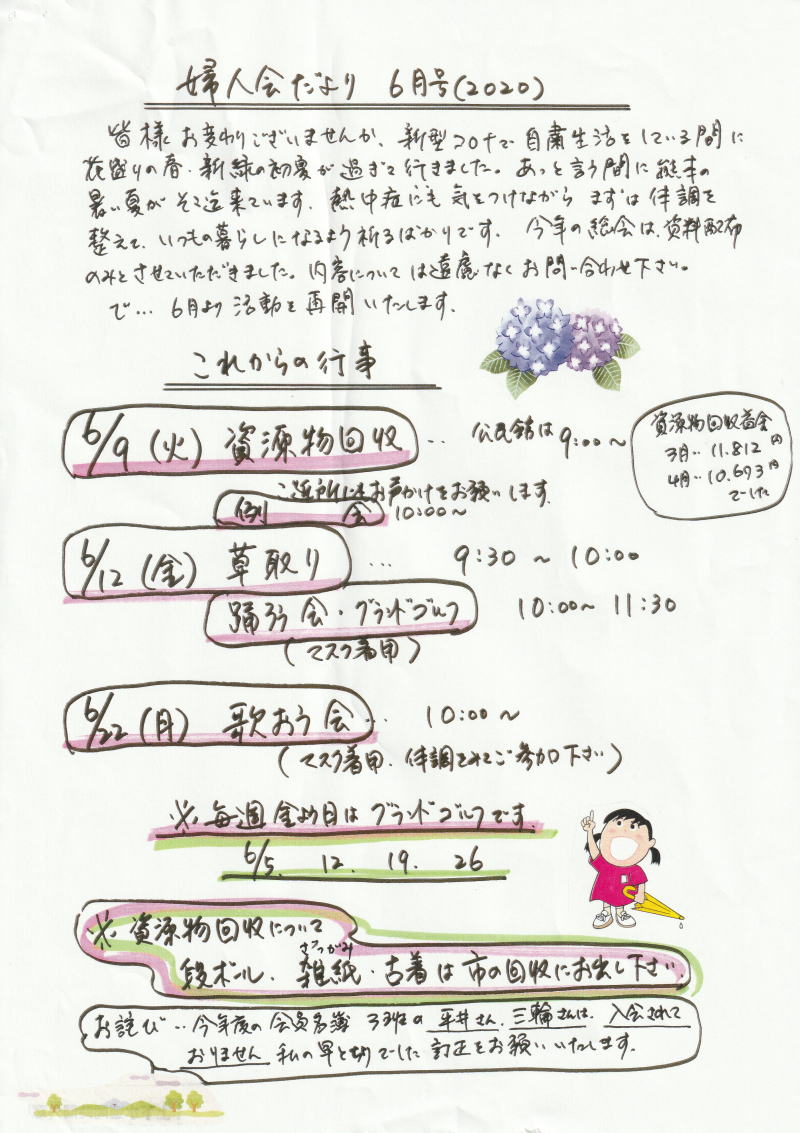 婦人会だより 6月号(2020)
皆様お変わりございませんか。新型コロナで自粛生活をしている間に
花盛りの春・新緑の初夏が過ぎて行きました。あっと言う間に熊本の
暑い夏がそこ迄来ています。熱中症にも気をつけながらまずは体調を
整えて、いつもの暮らしになるよう祈るばかりです。今年の総会は、資料配布
のみとさせていただきました。内容については遠慮なくお問い合わせ下さい。
で… 6月より活動を再開いたします。
これからの行事
6/9(火) 資源物回収 ‥ 公民館は 9:00〜
資源物回収益金
3月‥11.812円
4月‥10.693円
でした
ご近所にもお声かけをお願いします。
例 会 10:00〜
6/12(金) 草取り … 9:30 〜 10:00
踊ろう会・グランドゴルフ 10:00〜 11:30
(マスク着用)
6/22(月) 歌おう会 … 10:00〜
(マスク着用、体調をみてご参加下さい)
※毎週金よう日はグランドゴルフです。
6/5. 12. 19. 26
※資源物回収について
段ボール、雑紙・古着は市の回収にお出し下さい。
ざつがみ
お詫び‥今年度の会員名簿 3班の平井さん、三輪さんは、入会されて
おりません 私の早とちりでした 訂正をお願いいたします。